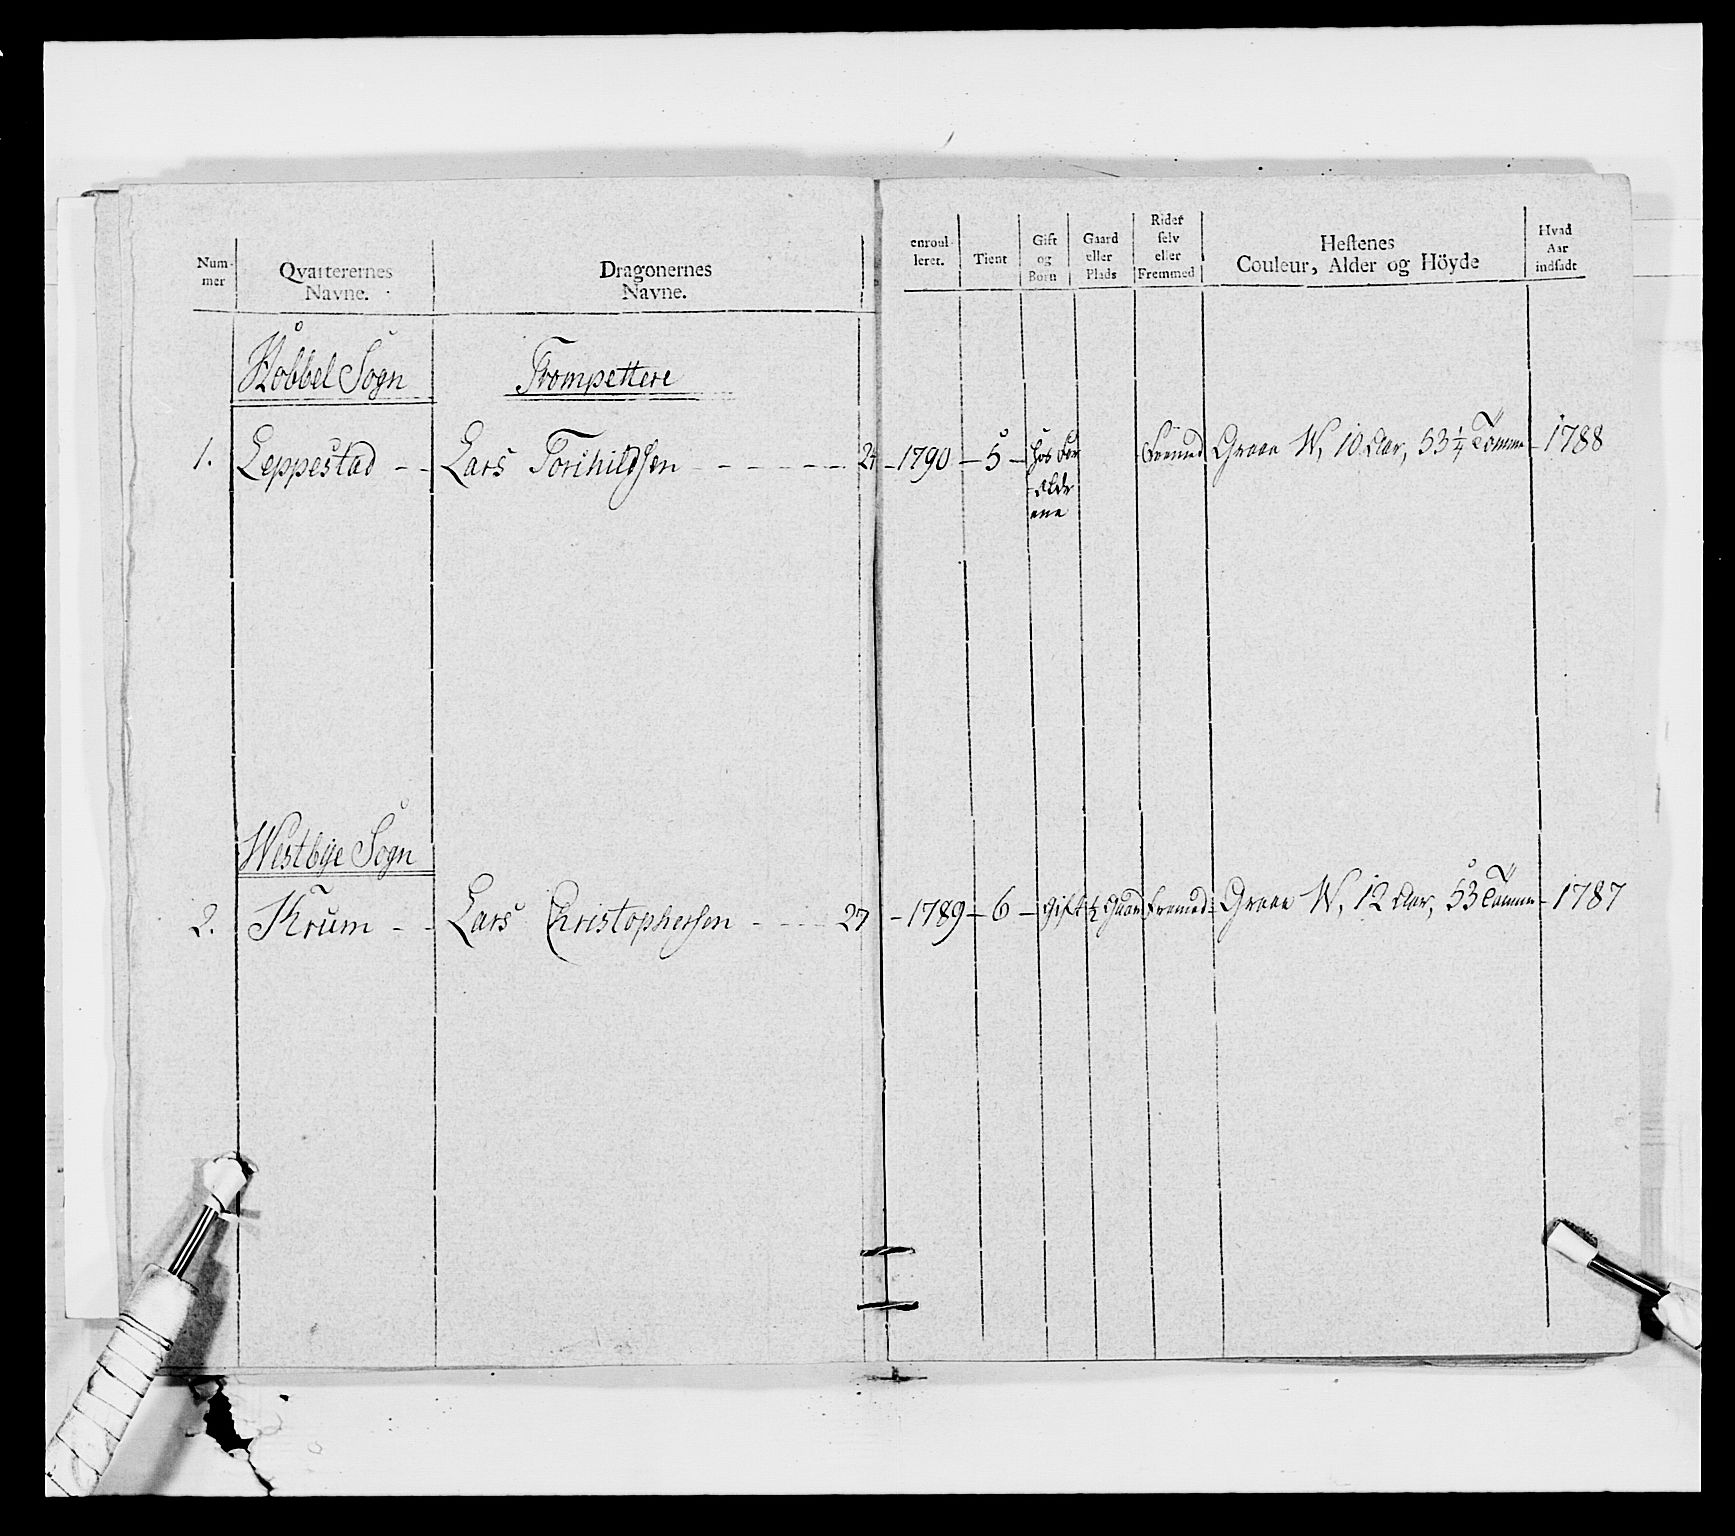 Num- mer
Qvarterernes Navne.
Dragonernes Navne.
enroul- leret.
Tient
Gift og Børn
Gaard eller Plads
Rider selv eller Fremmed
Hestenes Couleur, Alder og Höyde
Hvad Aar indsadt
Sogn
Trompettere
1. Leppestad - - Lars Torchildsen - - - - - 24 - 1790 - 5 - hos For
ældr
ene
Fremed Graae W, 10 Aar, 53 1/4 Tomme - 1788
Westbÿe Sogn
2. Krum - - Lars Christophersen - - - - 27 - 1789 - 6 - Gift 1/2 Gaard Fremed Graae W, 12 Aar, 53 Tomme - 1787